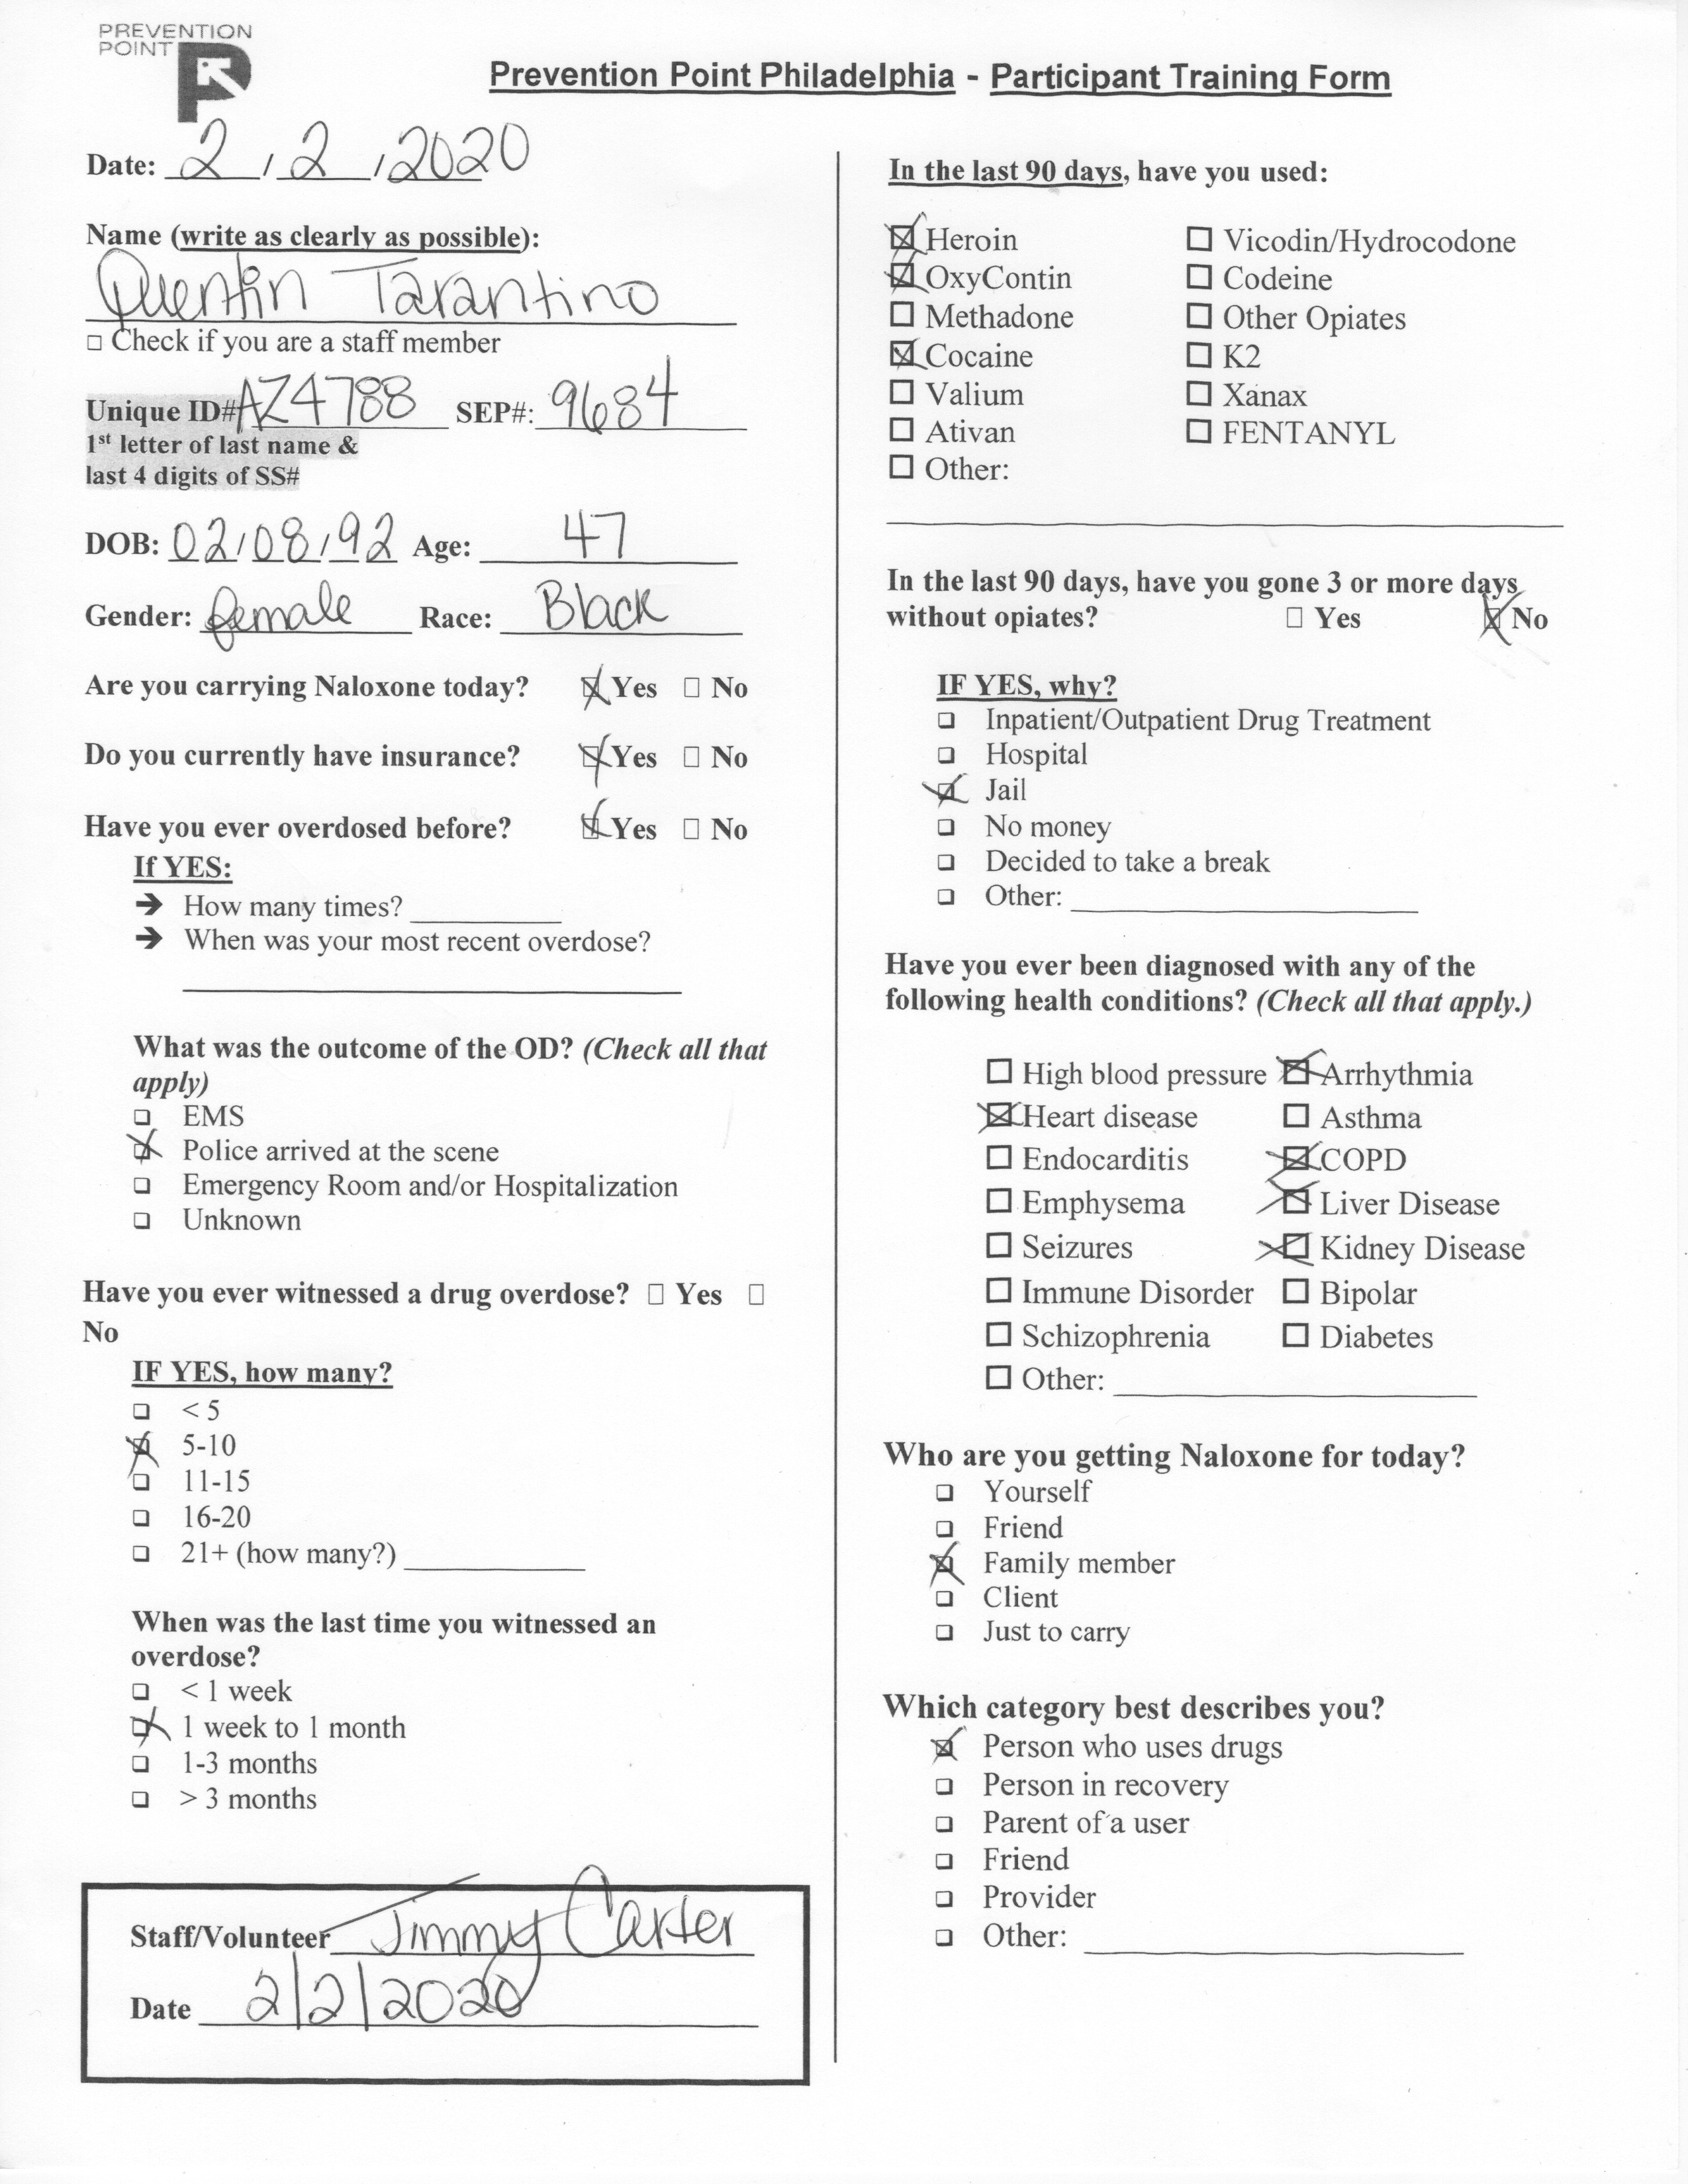 PREVENTION
POINT
Prevention Point Philadelphia - Participant Training Form
Date: 2 / 2 / 2020
Name (write as clearly as possible):
Quentin Tarantino
☐ Check if you are a staff member
Unique ID# AZ4788 SEP#: 9684
1st letter of last name &
last 4 digits of SS#
DOB: 02/08/92 Age: 47
Gender: female Race: Black
Are you carrying Naloxone today? ☒ Yes ☐ No
Do you currently have insurance? ☒ Yes ☐ No
Have you ever overdosed before? ☒ Yes ☐ No
If YES:
➔ How many times?
➔ When was your most recent overdose?
What was the outcome of the OD? (Check all that
apply)
☐ EMS
☒ Police arrived at the scene
☐ Emergency Room and/or Hospitalization
☐ Unknown
Have you ever witnessed a drug overdose? ☐ Yes ☐
No
IF YES, how many?
☐ < 5
☒ 5-10
☐ 11-15
☐ 16-20
☐ 21+ (how many?)
When was the last time you witnessed an
overdose?
☐ < 1 week
☒ 1 week to 1 month
☐ 1-3 months
☐ > 3 months
Staff/Volunteer Jimmy Carter
Date 2/2/2020
In the last 90 days, have you used:
☒ Heroin ☐ Vicodin/Hydrocodone
☒ OxyContin ☐ Codeine
☐ Methadone ☐ Other Opiates
☒ Cocaine ☐ K2
☐ Valium ☐ Xanax
☐ Ativan ☐ FENTANYL
☐ Other:
In the last 90 days, have you gone 3 or more days
without opiates? ☐ Yes ☒ No
IF YES, why?
☐ Inpatient/Outpatient Drug Treatment
☐ Hospital
☒ Jail
☐ No money
☐ Decided to take a break
☐ Other:
Have you ever been diagnosed with any of the
following health conditions? (Check all that apply.)
☐ High blood pressure ☒ Arrhythmia
☒ Heart disease ☐ Asthma
☐ Endocarditis ☒ COPD
☐ Emphysema ☒ Liver Disease
☐ Seizures ☒ Kidney Disease
☐ Immune Disorder ☐ Bipolar
☐ Schizophrenia ☐ Diabetes
☐ Other:
Who are you getting Naloxone for today?
☐ Yourself
☐ Friend
☒ Family member
☐ Client
☐ Just to carry
Which category best describes you?
☒ Person who uses drugs
☐ Person in recovery
☐ Parent of a user
☐ Friend
☐ Provider
☐ Other: